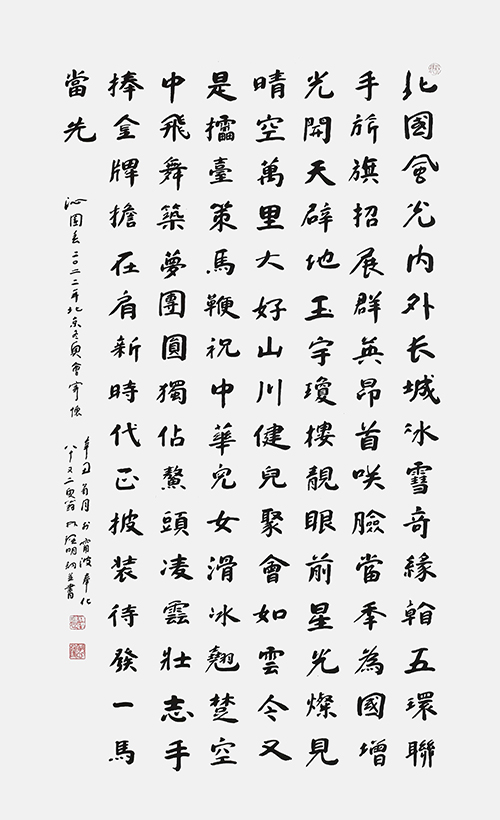 北國風光内外长城冰雪奇緣翰五環聯
手旂旗招展群英昂首咲臉當秊為國增
光開天辟地玉宇瓊樓靚眼前星光燦見
晴空萬里大好山川健兒聚會如雲今又
是擂臺策馬鞭祝中華兒女滑冰翹楚空
中飛舞築夢團圓獨佔鰲頭凌雲壯志手
捧金牌擔在肩新時代正披装待發一馬
當先
沁園春二〇二二年北京冬奥會寄懷
辛丑月於甯波奉化
八十又二翁明並書